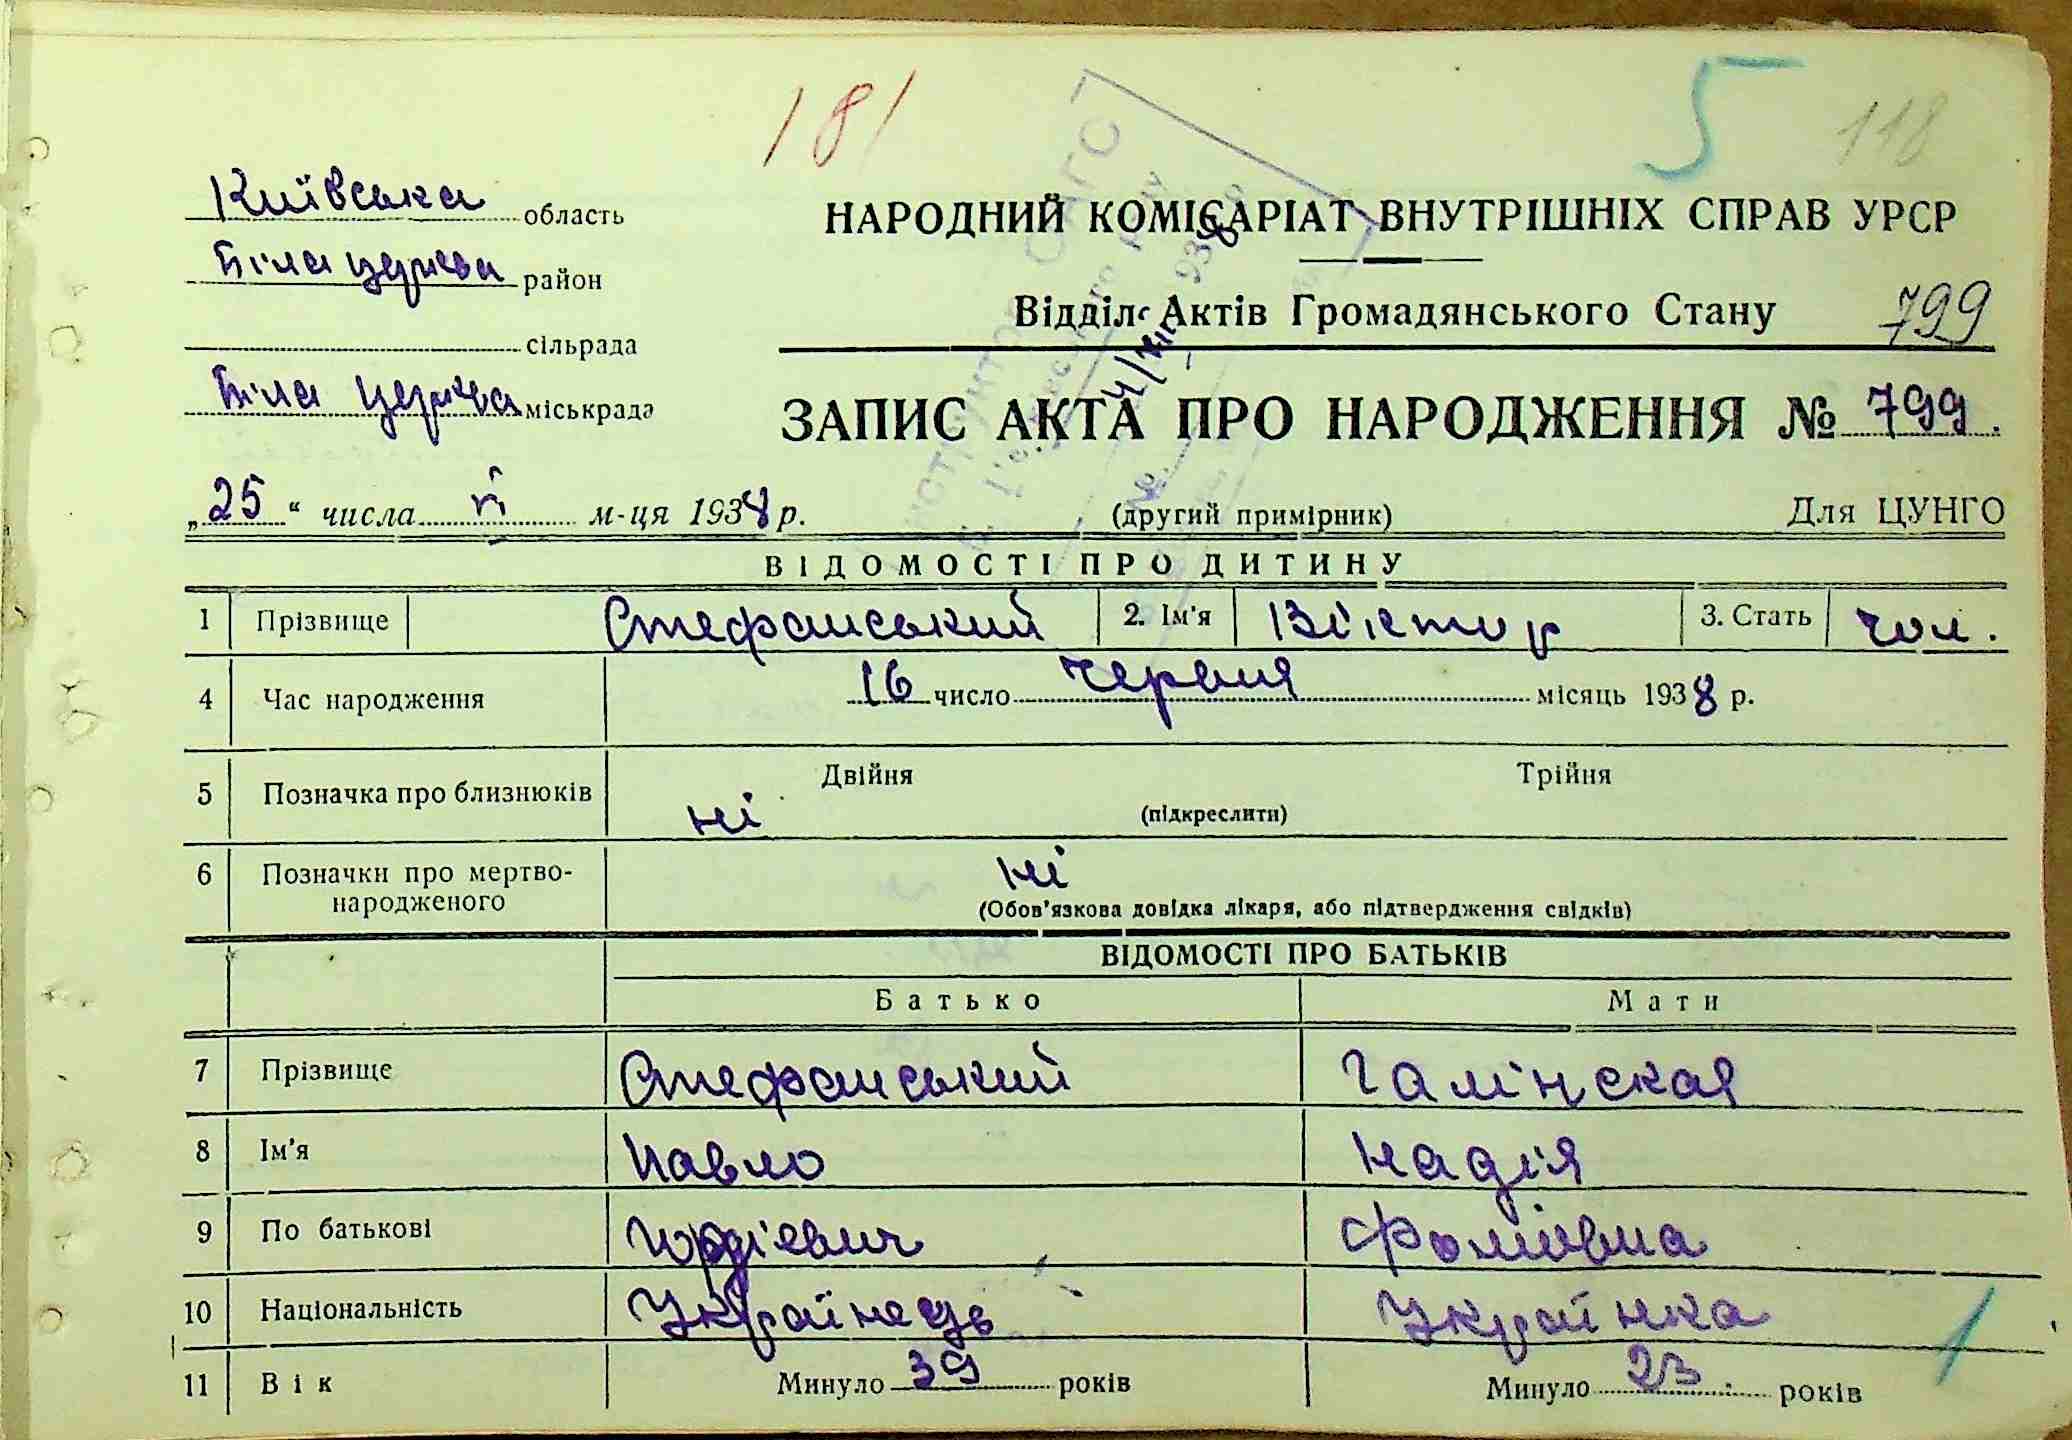 181
5
118
Київська область
Біла церква район
сільрада
Біла церква міськрада
НАРОДНИЙ КОМІСАРІАТ ВНУТРІШНІХ СПРАВ УРСР
Відділ Актів Громадянського Стану 799
ЗАПИС АКТА ПРО НАРОДЖЕННЯ № 799.
„25“ числа м-ця 1938 р. (другий примірник) Для ЦУНГО
ВІДОМОСТІ ПРО ДИТИНУ
1 Прізвище Стефанський 2. Ім'я Віктор 3. Стать чол.
4 Час народження 16 число червня місяць 1938 р.
5 Позначка про близнюків ні Двійня Трійня
(підкреслити)
6 Позначки про мертво-
народженого ні
(Обов'язкова довідка лікаря, або підтвердження свідків)
ВІДОМОСТІ ПРО БАТЬКІВ
Батько Мати
7 Прізвище Стефанський Галінская
8 Ім'я Павло Надія
9 По батькові Гордієвич Фомовна
10 Національність Українець Українка
1
11 Вік Минуло 39 років Минуло 23 років